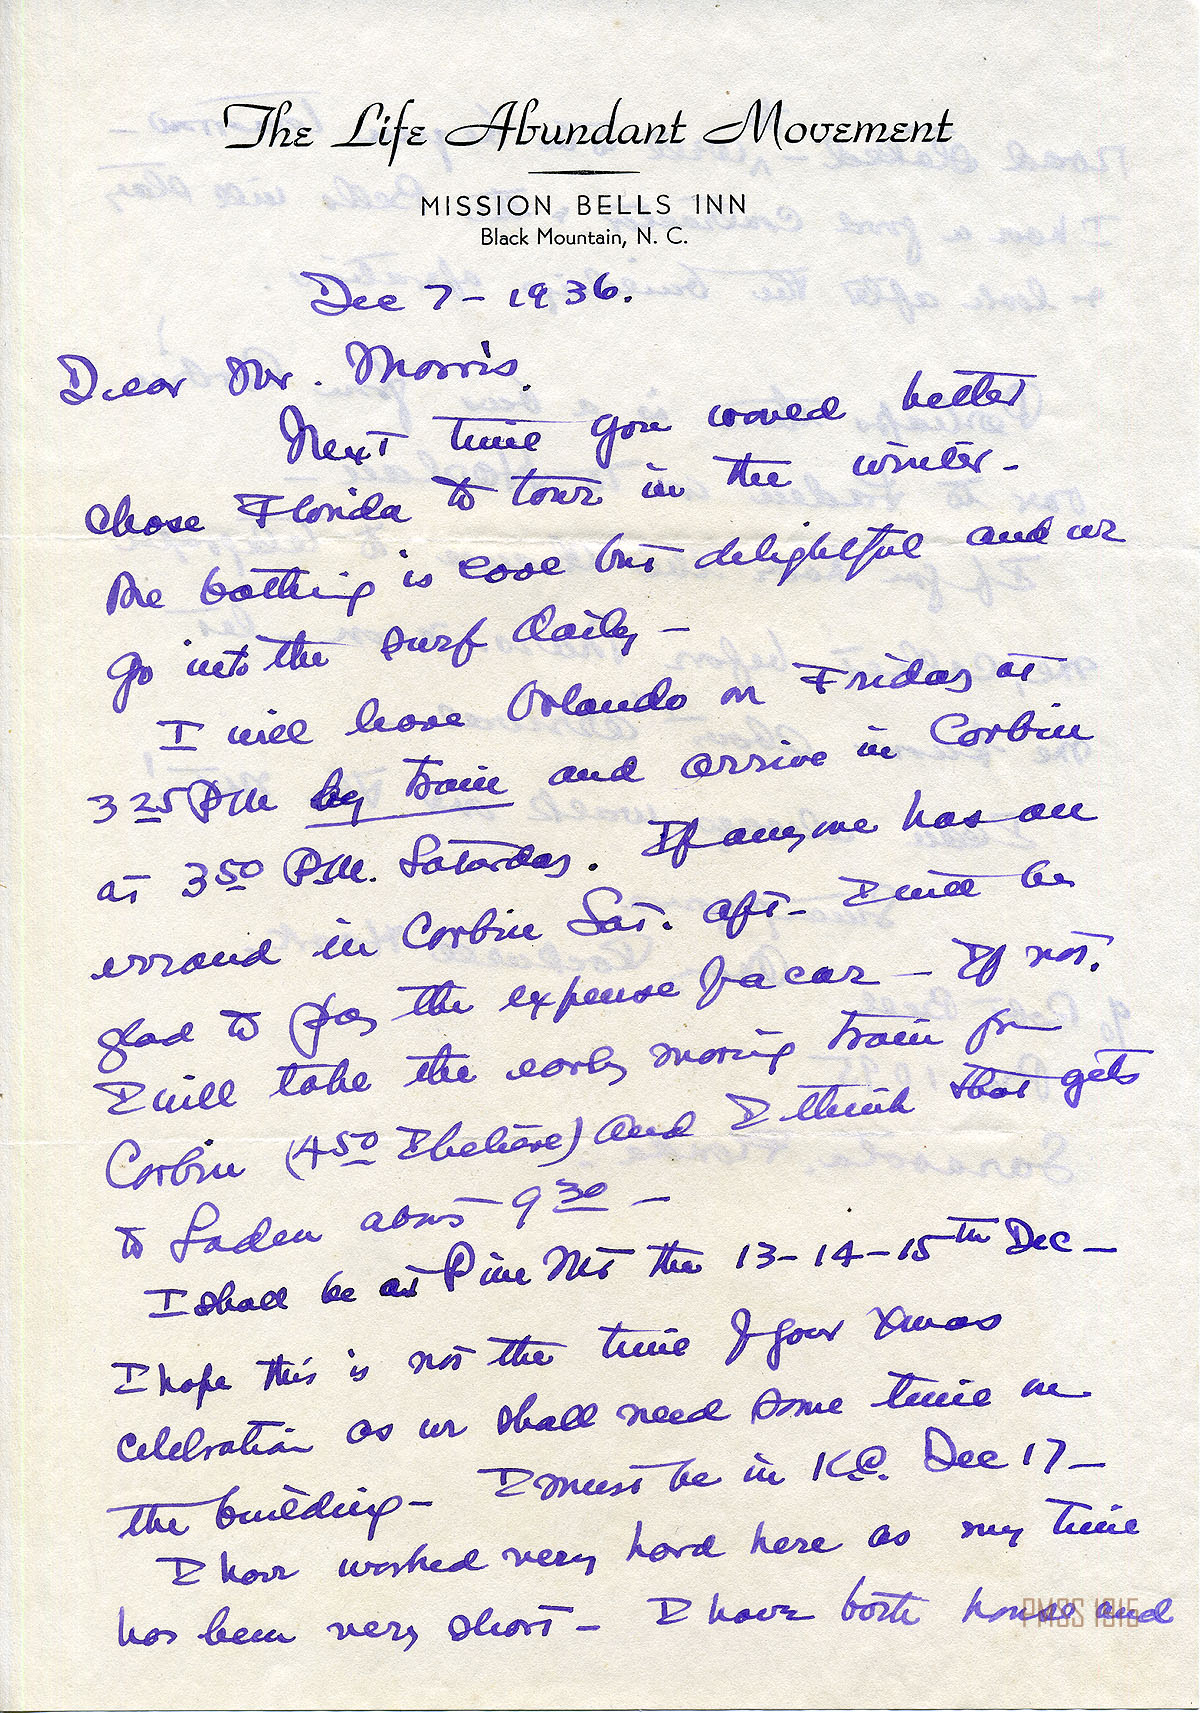 The Life Abundant Movement
MISSION BELLS INN
Black Mountain, N. C.
Dec 7 - 1936.
Dear Mr. Morris.
Next time you would better
chose Florida to tour in the winter -
The bathing is cool but delightful and we
go into the surf daily -
I will leave Orlando on Friday at
3 25 P.M. by train and arrive in Corbin
at 3 50 P.M. Saturday. If anyone has an
errand in Corbin Sat. aft - I will be
glad to pay the expense of a car - If not.
I will take the early morning train from
Corbin (4 50 I believe) and I think that gets
to Laden about 9 30 -
I shall be at Pine Mt the 13-14-15th Dec -
I hope this is not the time of your Xmas
celebration as we shall need some time on
the building - I must be in K.C. Dec 17 -
I have worked very hard here as my time
has been very short - I have both house and
PMSS 1315